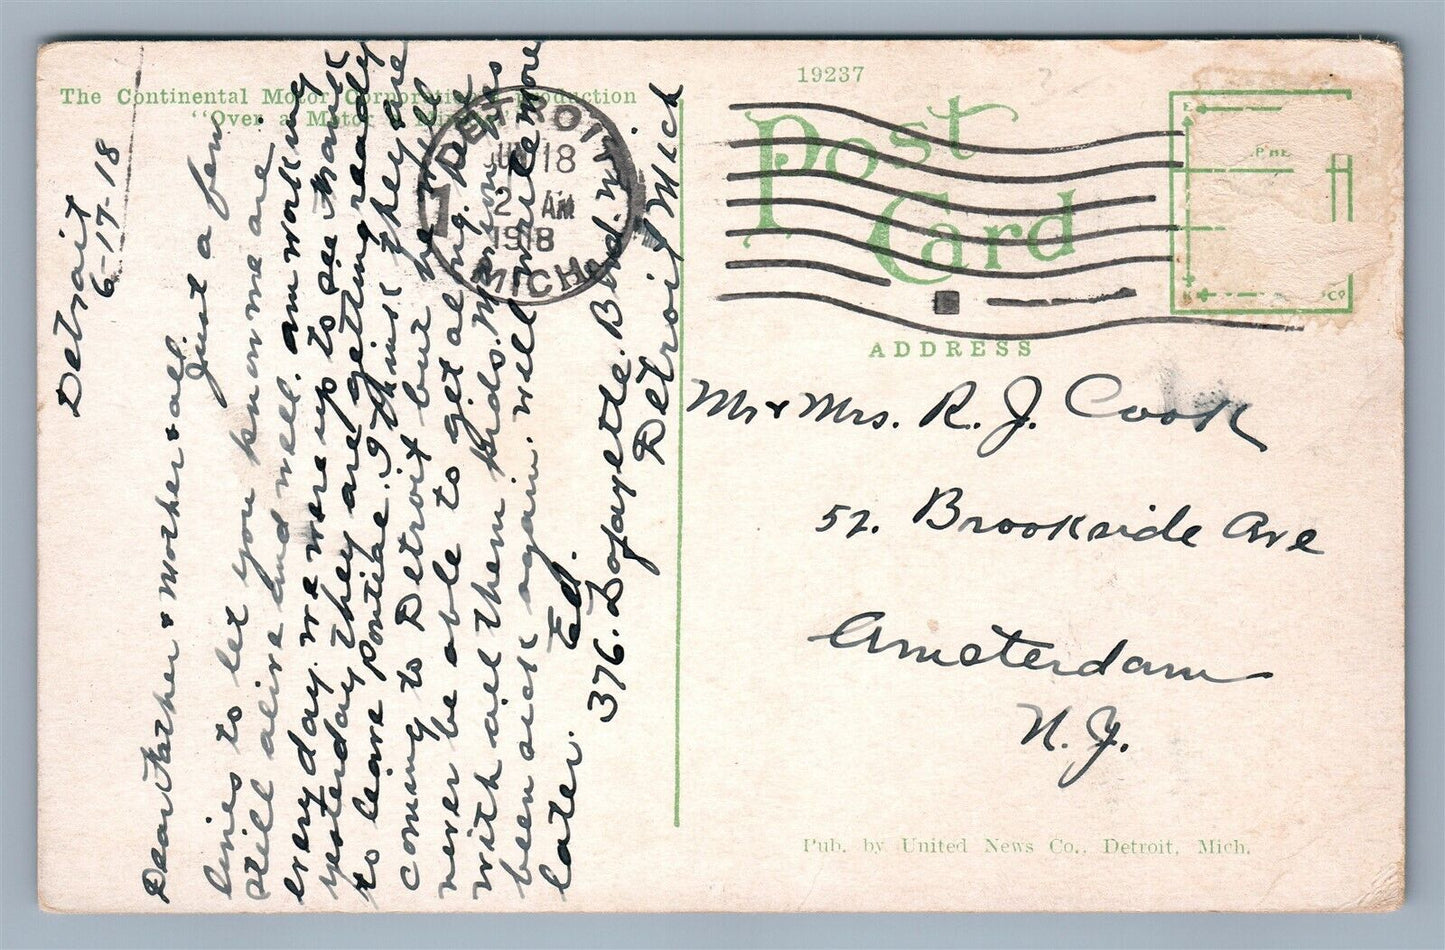 The Continental Motor Corporation's production
"Over a Motor a Minute"
19237
Post
Card
ADDRESS
DETROIT
1
JUN 18
2 AM
1918
MICH.
Detroit
6-17-18
Dear Father & Mother & all.
Just a few
lines to let you know we are
still alive and well. am working
every day. we were up to see Frank
yesterday they are getting ready
to leave pontiac. I think they are
coming to Detroit but he will
never be able to get along. here
with all them kids.
been sick again. will write more
later. Ed.
376. Lafayette. Blvd. W.
Detroit Mich
Mr & Mrs. R. J. Cook
52. Brookside Ave
Amsterdam
N. Y.
Pub. by United News Co., Detroit, Mich.